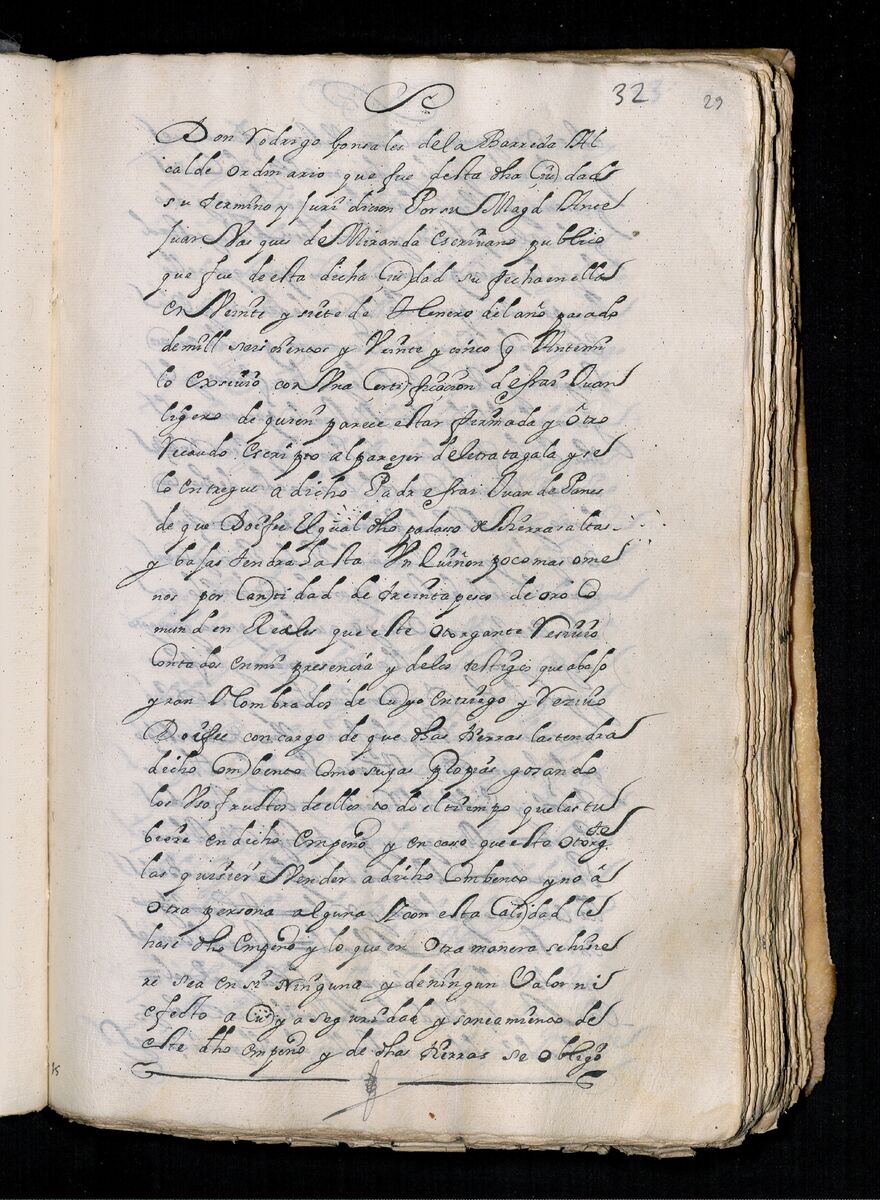 32 29
Don Rodrigo Gonsales de la Barreda Al
calde ordinario que fue desta dha Ciudad
su termino y Juridicion Por su Magd Ante
Juan Vasques de Miranda escriuano publico
que fue de esta dicha Ciudad su fecha en ella
en Veinte y siete de Henero del año pasado
de mill seis cientos y Veinte y cinco q Antemi
lo exsiuio con Vna Certificacion de frai Juan
ligero de quien parece estar firmada y otro
Recaudo escripto al pareser de letra tagala y se
lo entregue a dicho Padre frai Juan de Panes
de que Doi fee el qual dho pedaso de tierras altas
y bajas tendra hasta Vn Quiñon poco mas ome
nos por Cantidad de treinta pesos de oro Co
mun en Reales que este otorgante Resiuio
Contados en mi presencia y de los testigos que abajo
yran Nombrados de Cuyo entrego y Reziuo
Doi fee con cargo de que dhas tierras las tendra
dicho Combento Como suyas Propias gosando
los Vsofructos de ellas todo el tiempo que las tu
biere en dicho empeño y en caso que este otorgte
las quisiere Vender a dicho Combento y no a
otra persona alguna Y con esta Calidad le
hase dho empeño y lo que en otra manera se hisie
re sea en si Ninguna y de ningun Valor ni
efecto a Cuya seguridad y saneamiento de
este dho empeño y de dhas tierras se obligo